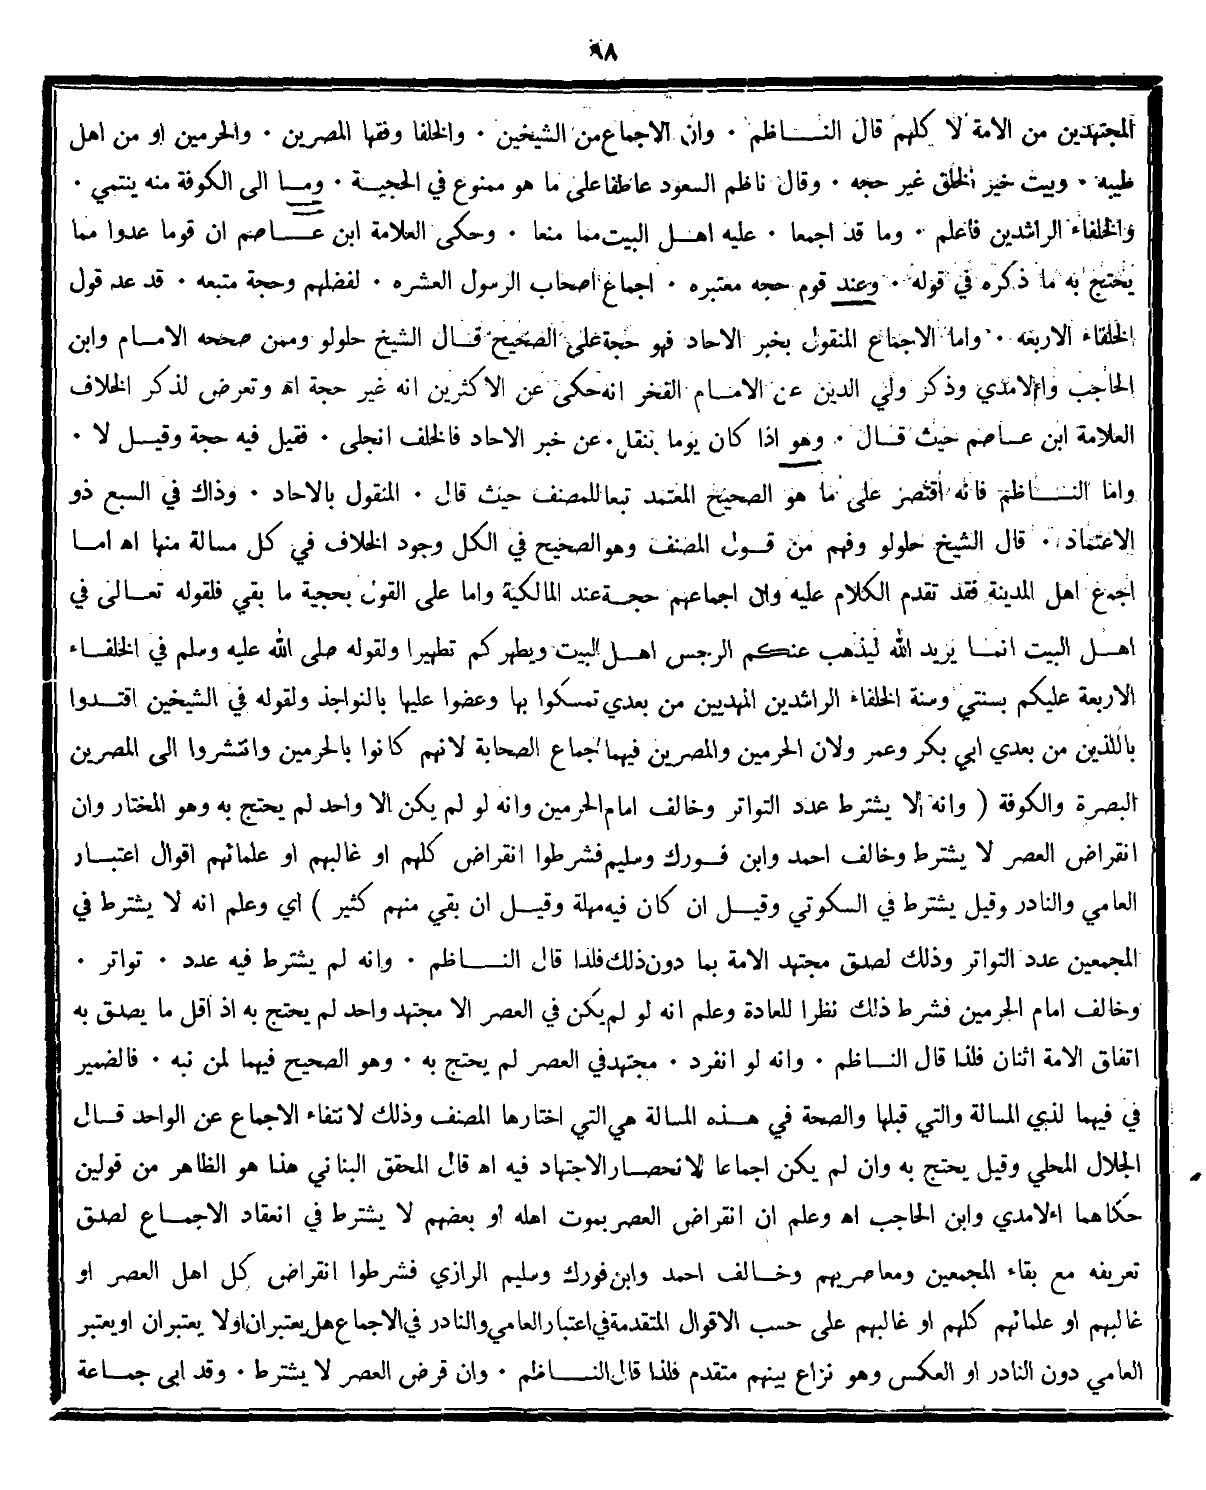 ٩٨
المجتهدين من الامة لا كلهم قال النـــاظم ٠ وان الاجماع من الشيخين ٠ والخلفا وفقها المصرين ٠ والحرمين او من اهل
طيبه ٠ وبيت خير الخلق غير حجه ٠ وقال ناظم السعود عاطفا على ما هو ممنوع في الحجيـة ٠ ومـا الى الكوفة منه ينتمي ٠
والخلفاء الراشدين فاعلم ٠ وما قد اجمعا ٠ عليه اهـل البيت مما منعا ٠ وحكى العلامة ابن عـــاصم ان قوما عدوا مما
يحتج به ما ذكره في قوله ٠ وعند قوم حجه معتبره ٠ اجماع اصحاب الرسول العشره ٠ لفضلهم وحجة متبعه ٠ قد عد قول
الخلفاء الاربعه ٠ واما الاجماع المنقول بخبر الاحاد فهو حجة على الصحيح قـال الشيخ حلولو وممن صححه الامـام وابن
الحاجب والامدي وذكر ولي الدين عن الامـام الفخر انه حكى عن الاكثرين انه غير حجة اه وتعرض لذكر الخلاف
العلامة ابن عـاصم حيث قـال ٠ وهو اذا كان يوما ينقل ٠ عن خبر الاحاد فالخلف انجلى ٠ فقيل فيه حجة وقيـل لا ٠
واما النـــاظم فانه اقتصر على ما هو الصحيح المعتمد تبعا للمصنف حيث قال ٠ المنقول بالاحاد ٠ وذاك في السبع ذو
الاعتماد ٠ قال الشيخ حلولو وفهم من قـول المصنف وهو الصحيح في الكل وجود الخلاف في كل مسالة منها اه امـا
اجماع اهل المدينة فقد تقدم الكلام عليه وان اجماعهم حجـة عند المالكية واما على القول بحجية ما بقي فلقوله تعـالى في
اهـل البيت انمـا يريد الله ليذهب عنكم الرجس اهـل البيت ويطهركم تطهيرا ولقوله صلى الله عليه وسلم في الخلفـاء
الاربعة عليكم بسنتي وسنة الخلفاء الراشدين المهديين من بعدي تمسكوا بها وعضوا عليها بالنواجذ ولقوله في الشيخين اقتـدوا
باللذين من بعدي ابي بكر وعمر ولان الحرمين والمصرين فيهما اجماع الصحابة لانهم كانوا بالحرمين وانتشروا الى المصرين
البصرة والكوفة ( وانه لا يشترط عدد التواتر وخالف امام الحرمين وانه لو لم يكن الا واحد لم يحتج به وهو المختار وان
انقراض العصر لا يشترط وخالف احمد وابن فـورك وسليم فشرطوا انقراض كلهم او غالبهم او علمائهم اقوال اعتبـار
العامي والنادر وقيل يشترط في السكوتي وقيـل ان كان فيه مهلة وقيـل ان بقي منهم كثير ) اي وعلم انه لا يشترط في
المجمعين عدد التواتر وذلك لصدق مجتهد الامة بما دون ذلك فلذا قال النـــاظم ٠ وانه لم يشترط فيه عدد ٠ تواتر ٠
وخالف امام الحرمين فشرط ذلك نظرا للعادة وعلم انه لو لم يكن في العصر الا مجتهد واحد لم يحتج به اذ اقل ما يصدق به
اتفاق الامة اثنان فلذا قال النـــاظم ٠ وانه لو انفرد ٠ مجتهد في العصر لم يحتج به ٠ وهو الصحيح فيهما لمن نبه ٠ فالضمير
في فيهما لذي المسالة والتي قبلها والصحة في هـذه المسالة هي التي اختارها المصنف وذلك لانتفاء الاجماع عن الواحد قـال
الجلال المحلي وقيل يحتج به وان لم يكن اجماعا لانحصـار الاجتهاد فيه اه قال المحقق البناني هذا هو الظاهر من قولين
حكاهما الامدي وابن الحاجب اه وعلم ان انقراض العصر بموت اهله او بعضهم لا يشترط في انعقاد الاجمـاع لصدق
تعريفه مع بقاء المجمعين ومعاصريهم وخـالف احمد وابن فورك وسليم الرازي فشرطوا انقراض كل اهل العصر او
غالبهم او علمائهم كلهم او غالبهم على حسب الاقوال المتقدمة في اعتبار العامي والنادر في الاجماع هل يعتبران او لا يعتبران او يعتبر
العامي دون النادر او العكس وهو نزاع بينهم متقدم فلذا قال النـــاظم ٠ وان قرض العصر لا يشترط ٠ وقد ابى جمـاعة